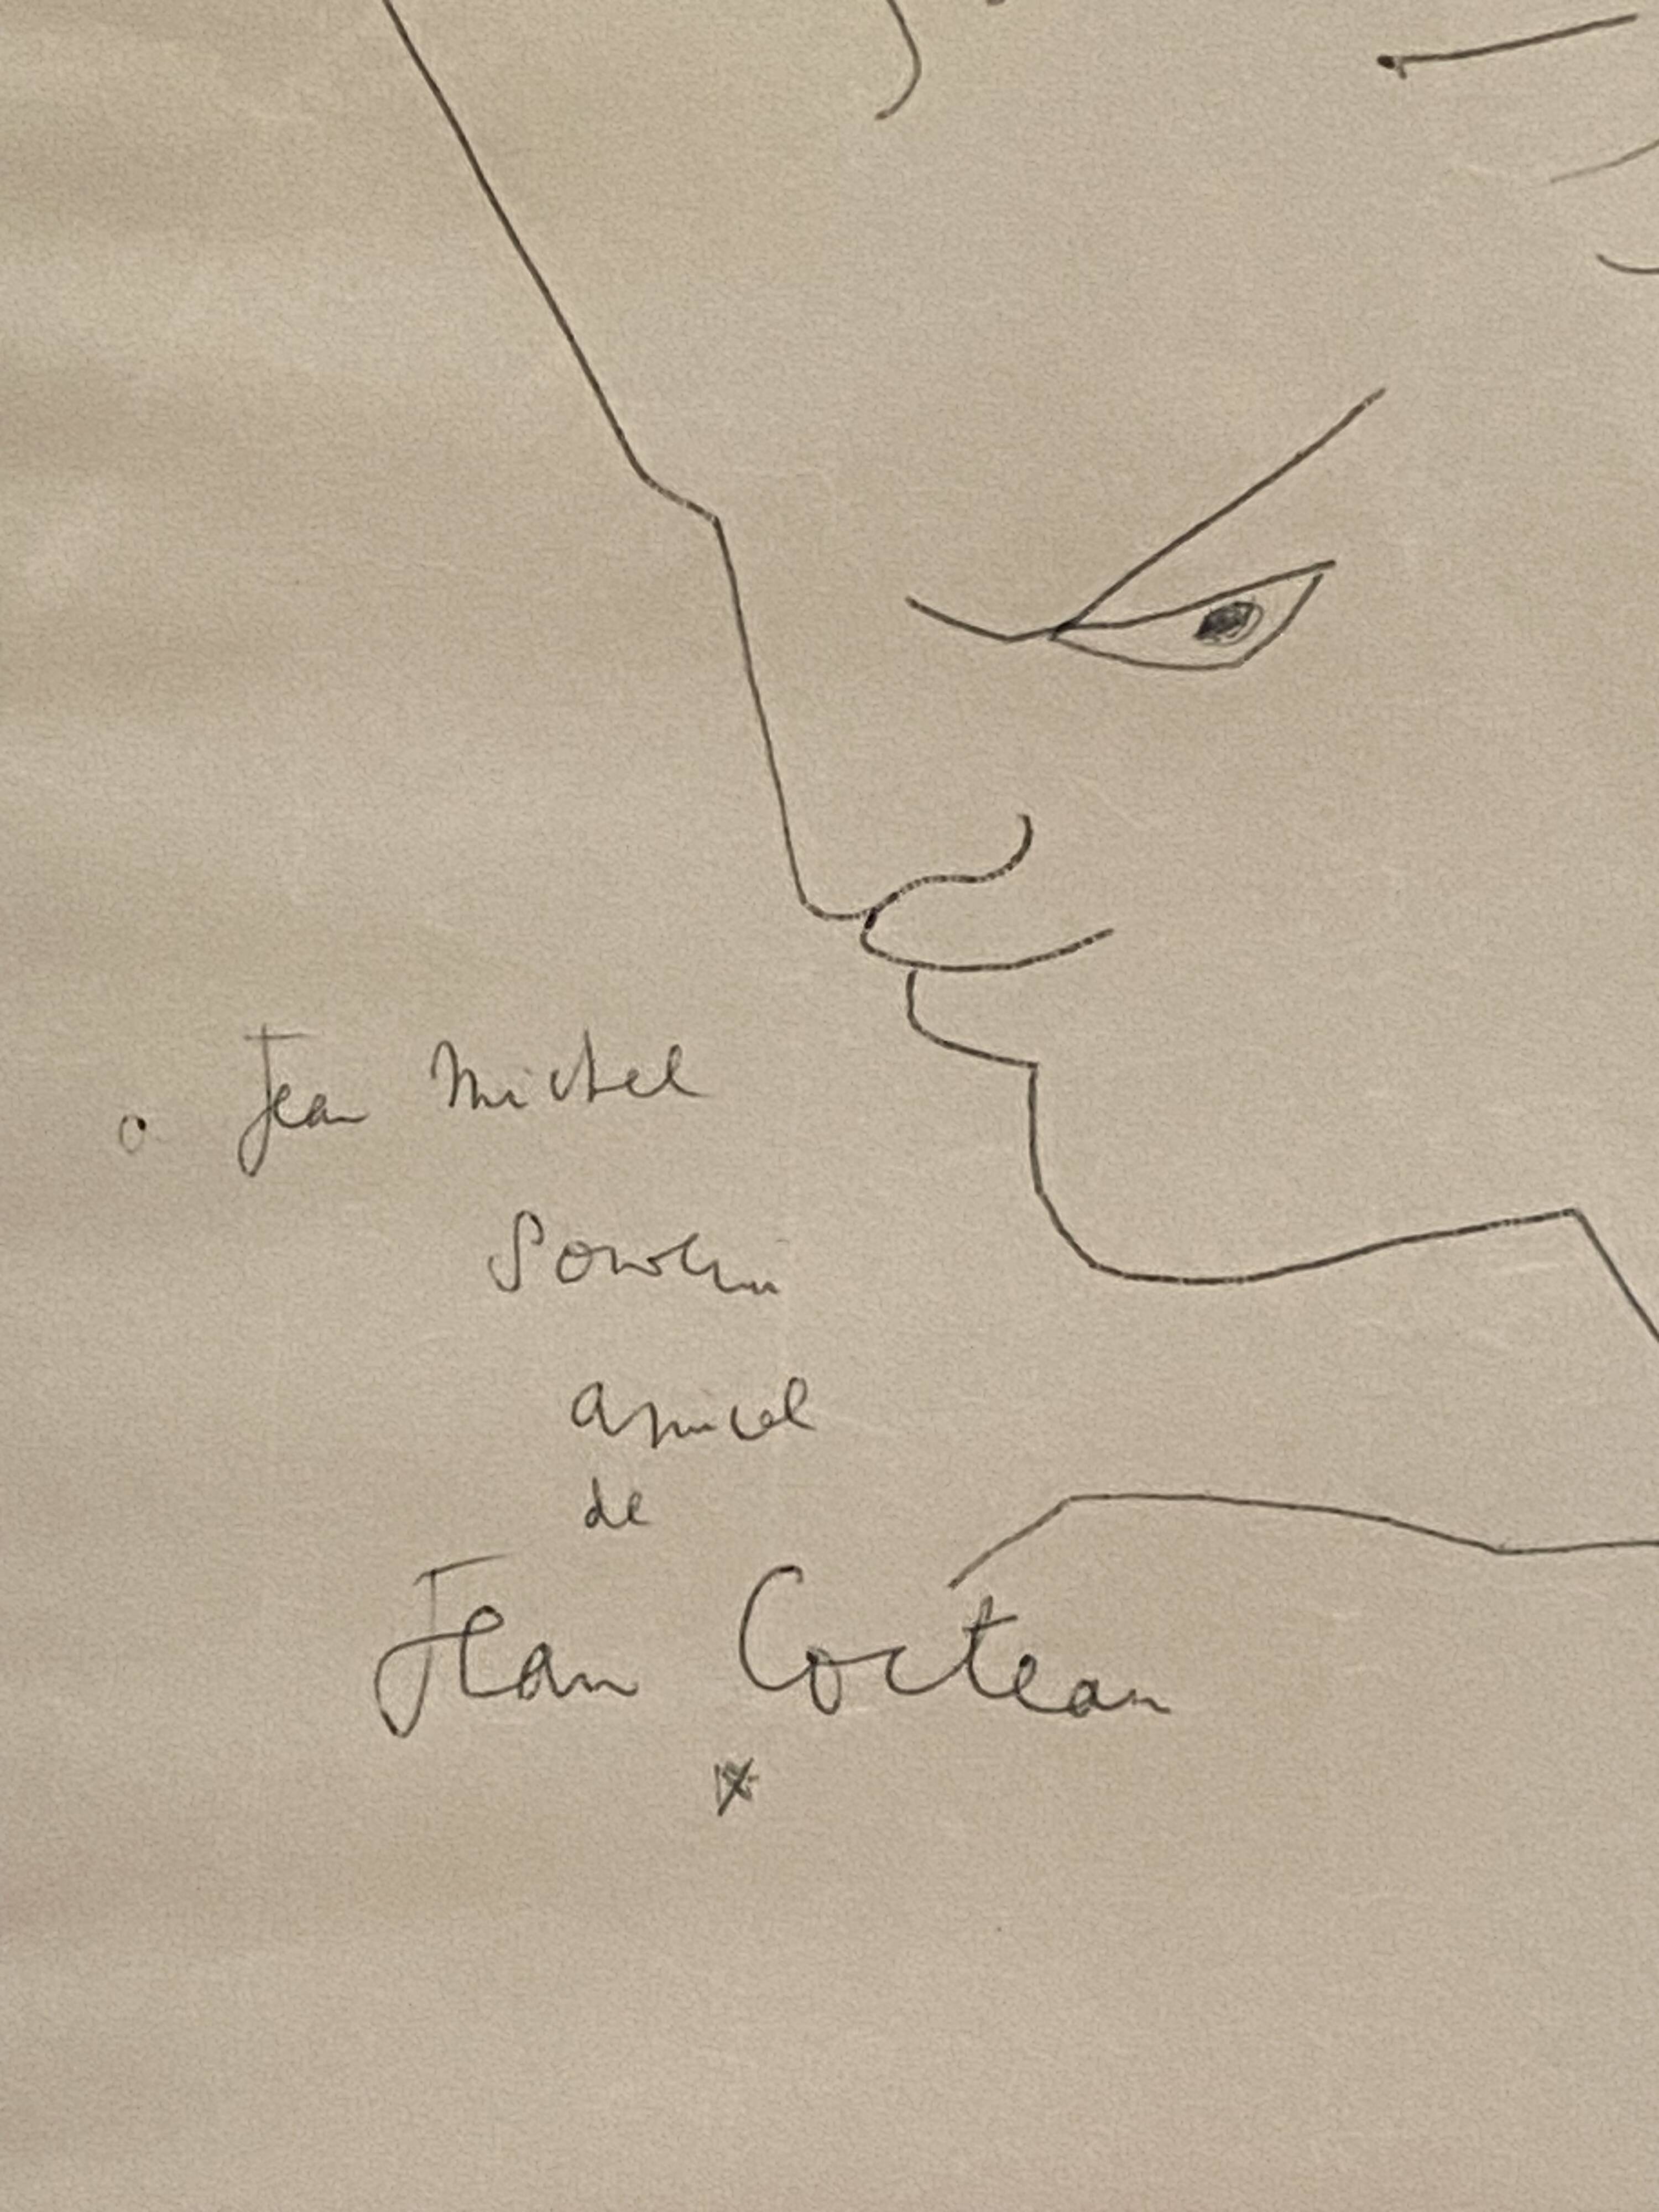 a Jean Michel
Souvenir
amical
de
Jean Cocteau